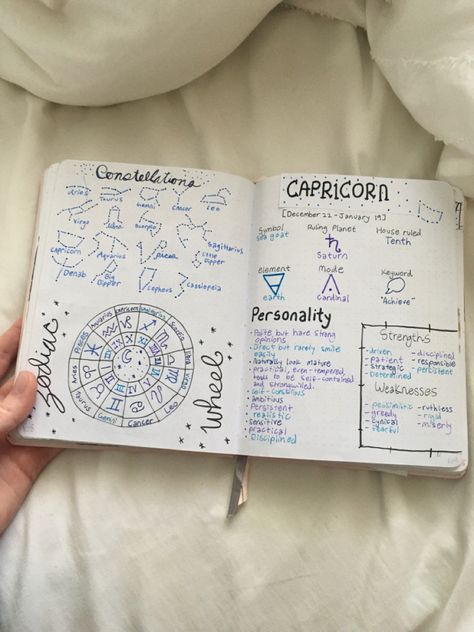 Constellations
Aries
Taurus
Gemini
Cancer
Leo
Virgo
Libra
Scorpio
Sagittarius
Capricorn
Aquarius
Pisces
Little
Dipper
Denab
Big
Dipper
Cephus
Cassiopeia
Zodiac
Wheel
Aquarius
Capricorn
Sagittarius
Scorpio
Libra
Virgo
Leo
Canser
Gemini
Taurus
Aries
Pisces
CAPRICORN
[December 22 - January 19]
Symbol
sea goat
Ruling Planet
Saturn
House ruled
Tenth
element
earth
Mode
Cardinal
Keyword
"Achieve"
Personality
- Polite but have strong
opinions
- Direct but rarely smile
easily
- Naturally look mature
- practical, even-tempered,
tends to be self-contained
and strongwilled.
- self-conscious
- Ambitious
- Persistent
- realistic
- sensitive
- practical
- Disciplined
Strengths
- driven
- patient
- strategic
- Determined
- disciplined
- responsible
- persistent
Weaknesses
- pessimistic
- greedy
- cynical
- fearful
- ruthless
- rigid
- miserly